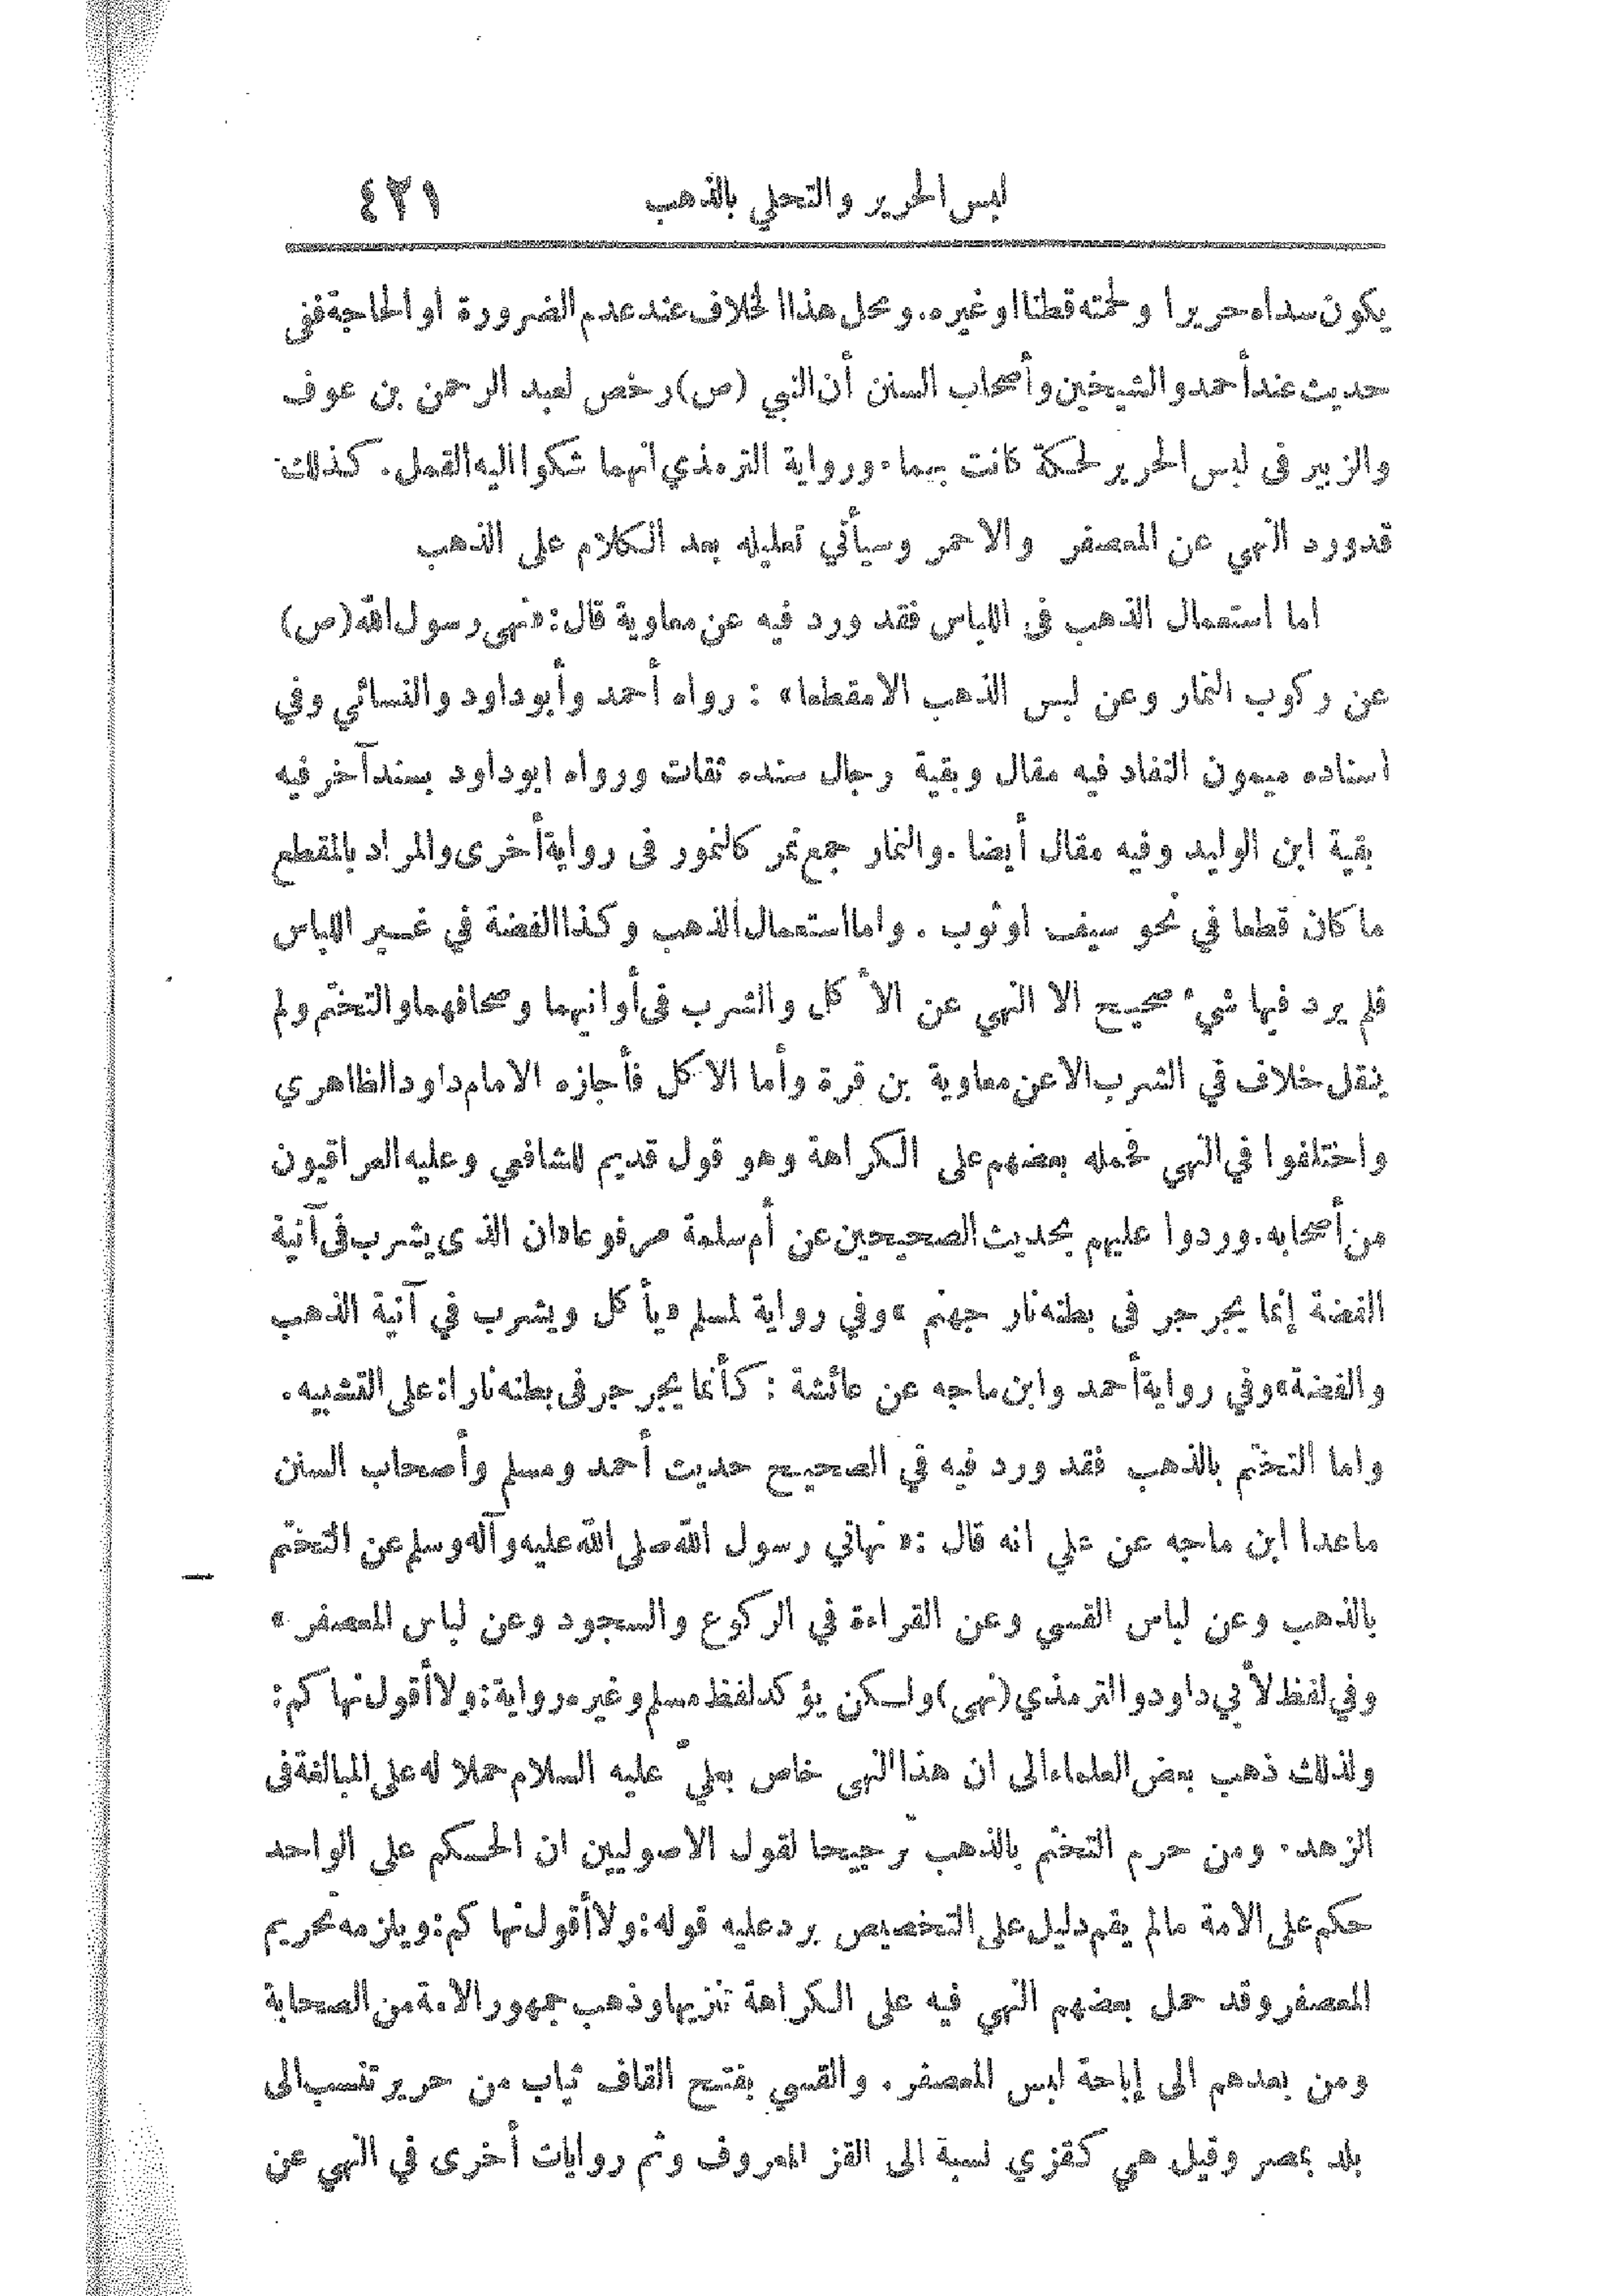 لبس الحرير والتحلي بالذهب ٤٢١
يكون سداه حريرا ولحمته قطنا او غيره. ومحل هذا الخلاف عند عدم الضرورة او الحاجة ففي
حديث عند أحمد والشيخين وأصحاب السنن أن النبي (ص) رخص لعبد الرحمن بن عوف
والزبير في لبس الحرير لحكة كانت بهما. ورواية الترمذي انهما شكوا اليه القمل. كذلك
قد ورد النهي عن المعصفر والاحمر وسيأتي تعليله بعد الكلام على الذهب
اما استعمال الذهب في اللباس فقد ورد فيه عن معاوية قال: «نهى رسول الله (ص)
عن ركوب النمار وعن لبس الذهب الا مقطعا» : رواه أحمد وأبو داود والنسائي وفي
اسناده ميمون القناد فيه مقال وبقية رجال سنده ثقات ورواه ابو داود بسند آخر فيه
بقية ابن الوليد وفيه مقال أيضا . والنمار جمع نمر كالنمور في رواية أخرى والمراد بالمقطع
ما كان قطعا في نحو سيف او ثوب . واما استعمال الذهب وكذا الفضة في غير اللباس
فلم يرد فيها شيء صحيح الا النهي عن الأكل والشرب في أوانيهما وصحافهما والتختم ولم
ينقل خلاف في الشرب الا عن معاوية بن قرة وأما الاكل فأجازه الامام داود الظاهري
واختلفوا في النهي فحمله بعضهم على الكراهة وهو قول قديم للشافعي وعليه العراقيون
من أصحابه. وردوا عليهم بحديث الصحيحين عن أم سلمة مرفوعا «ان الذي يشرب في آنية
الفضة إنما يجرجر في بطنه نار جهنم » وفي رواية لمسلم «يأكل ويشرب في آنية الذهب
والفضة» وفي رواية أحمد وابن ماجه عن عائشة : كأنما يجرجر في بطنه نارا: على التشبيه.
واما التختم بالذهب فقد ورد فيه في الصحيح حديث أحمد ومسلم وأصحاب السنن
ما عدا ابن ماجه عن علي انه قال :« نهاني رسول الله صلى الله عليه وآله وسلم عن التختم
بالذهب وعن لباس القسي وعن القراءة في الركوع والسجود وعن لباس المعصفر »
وفي لفظ لأبي داود والترمذي (نهى) ولكن يؤكد لفظ مسلم وغيره رواية: ولا أقول نهاكم:
ولذلك ذهب بعض العلماء الى ان هذا النهي خاص بعليّ عليه السلام حملا له على المبالغة في
الزهد. ومن حرم التختم بالذهب ترجيحا لقول الاصوليين ان الحكم على الواحد
حكم على الامة ما لم يقم دليل على التخصيص يرد عليه قوله: ولا أقول نهاكم: ويلزمه تحريم
المعصفر وقد حمل بعضهم النهي فيه على الكراهة تنزيها وذهب جمهور الامة من الصحابة
ومن بعدهم الى إباحة لبس المعصفر . والقسي بفتح القاف ثياب من حرير تنسب الى
بلد بمصر وقيل هي كقزي نسبة الى القز المعروف وثم روايات أخرى في النهي عن